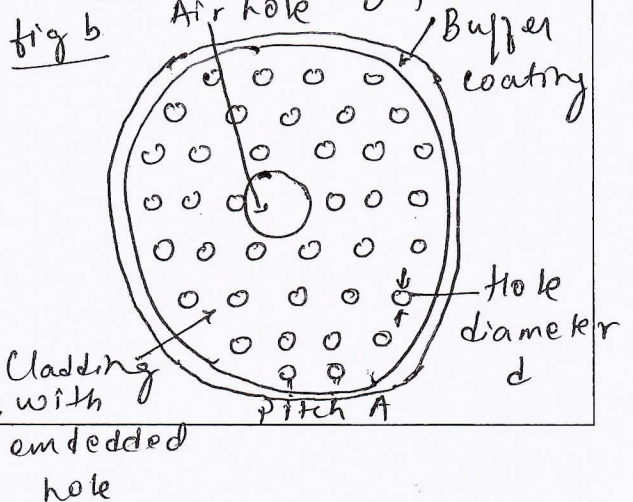 fig b
Air hole
Buffer
coating
Hole
diameter
d
Cladding
with
emdedded
hole
Pitch A